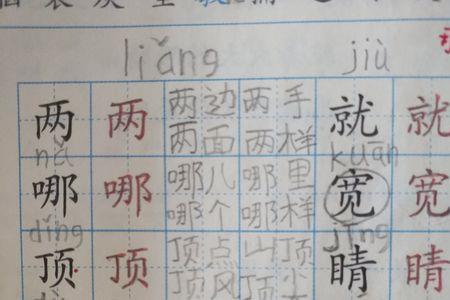 liǎng jiù
两 两 两边 两手 就 就
两面 两样
nǎ kuān
哪 哪 哪儿 哪里 宽 宽
哪个 哪样
dǐng jīng
顶 顶 顶点 山顶 睛 睛
顶风 顶尖